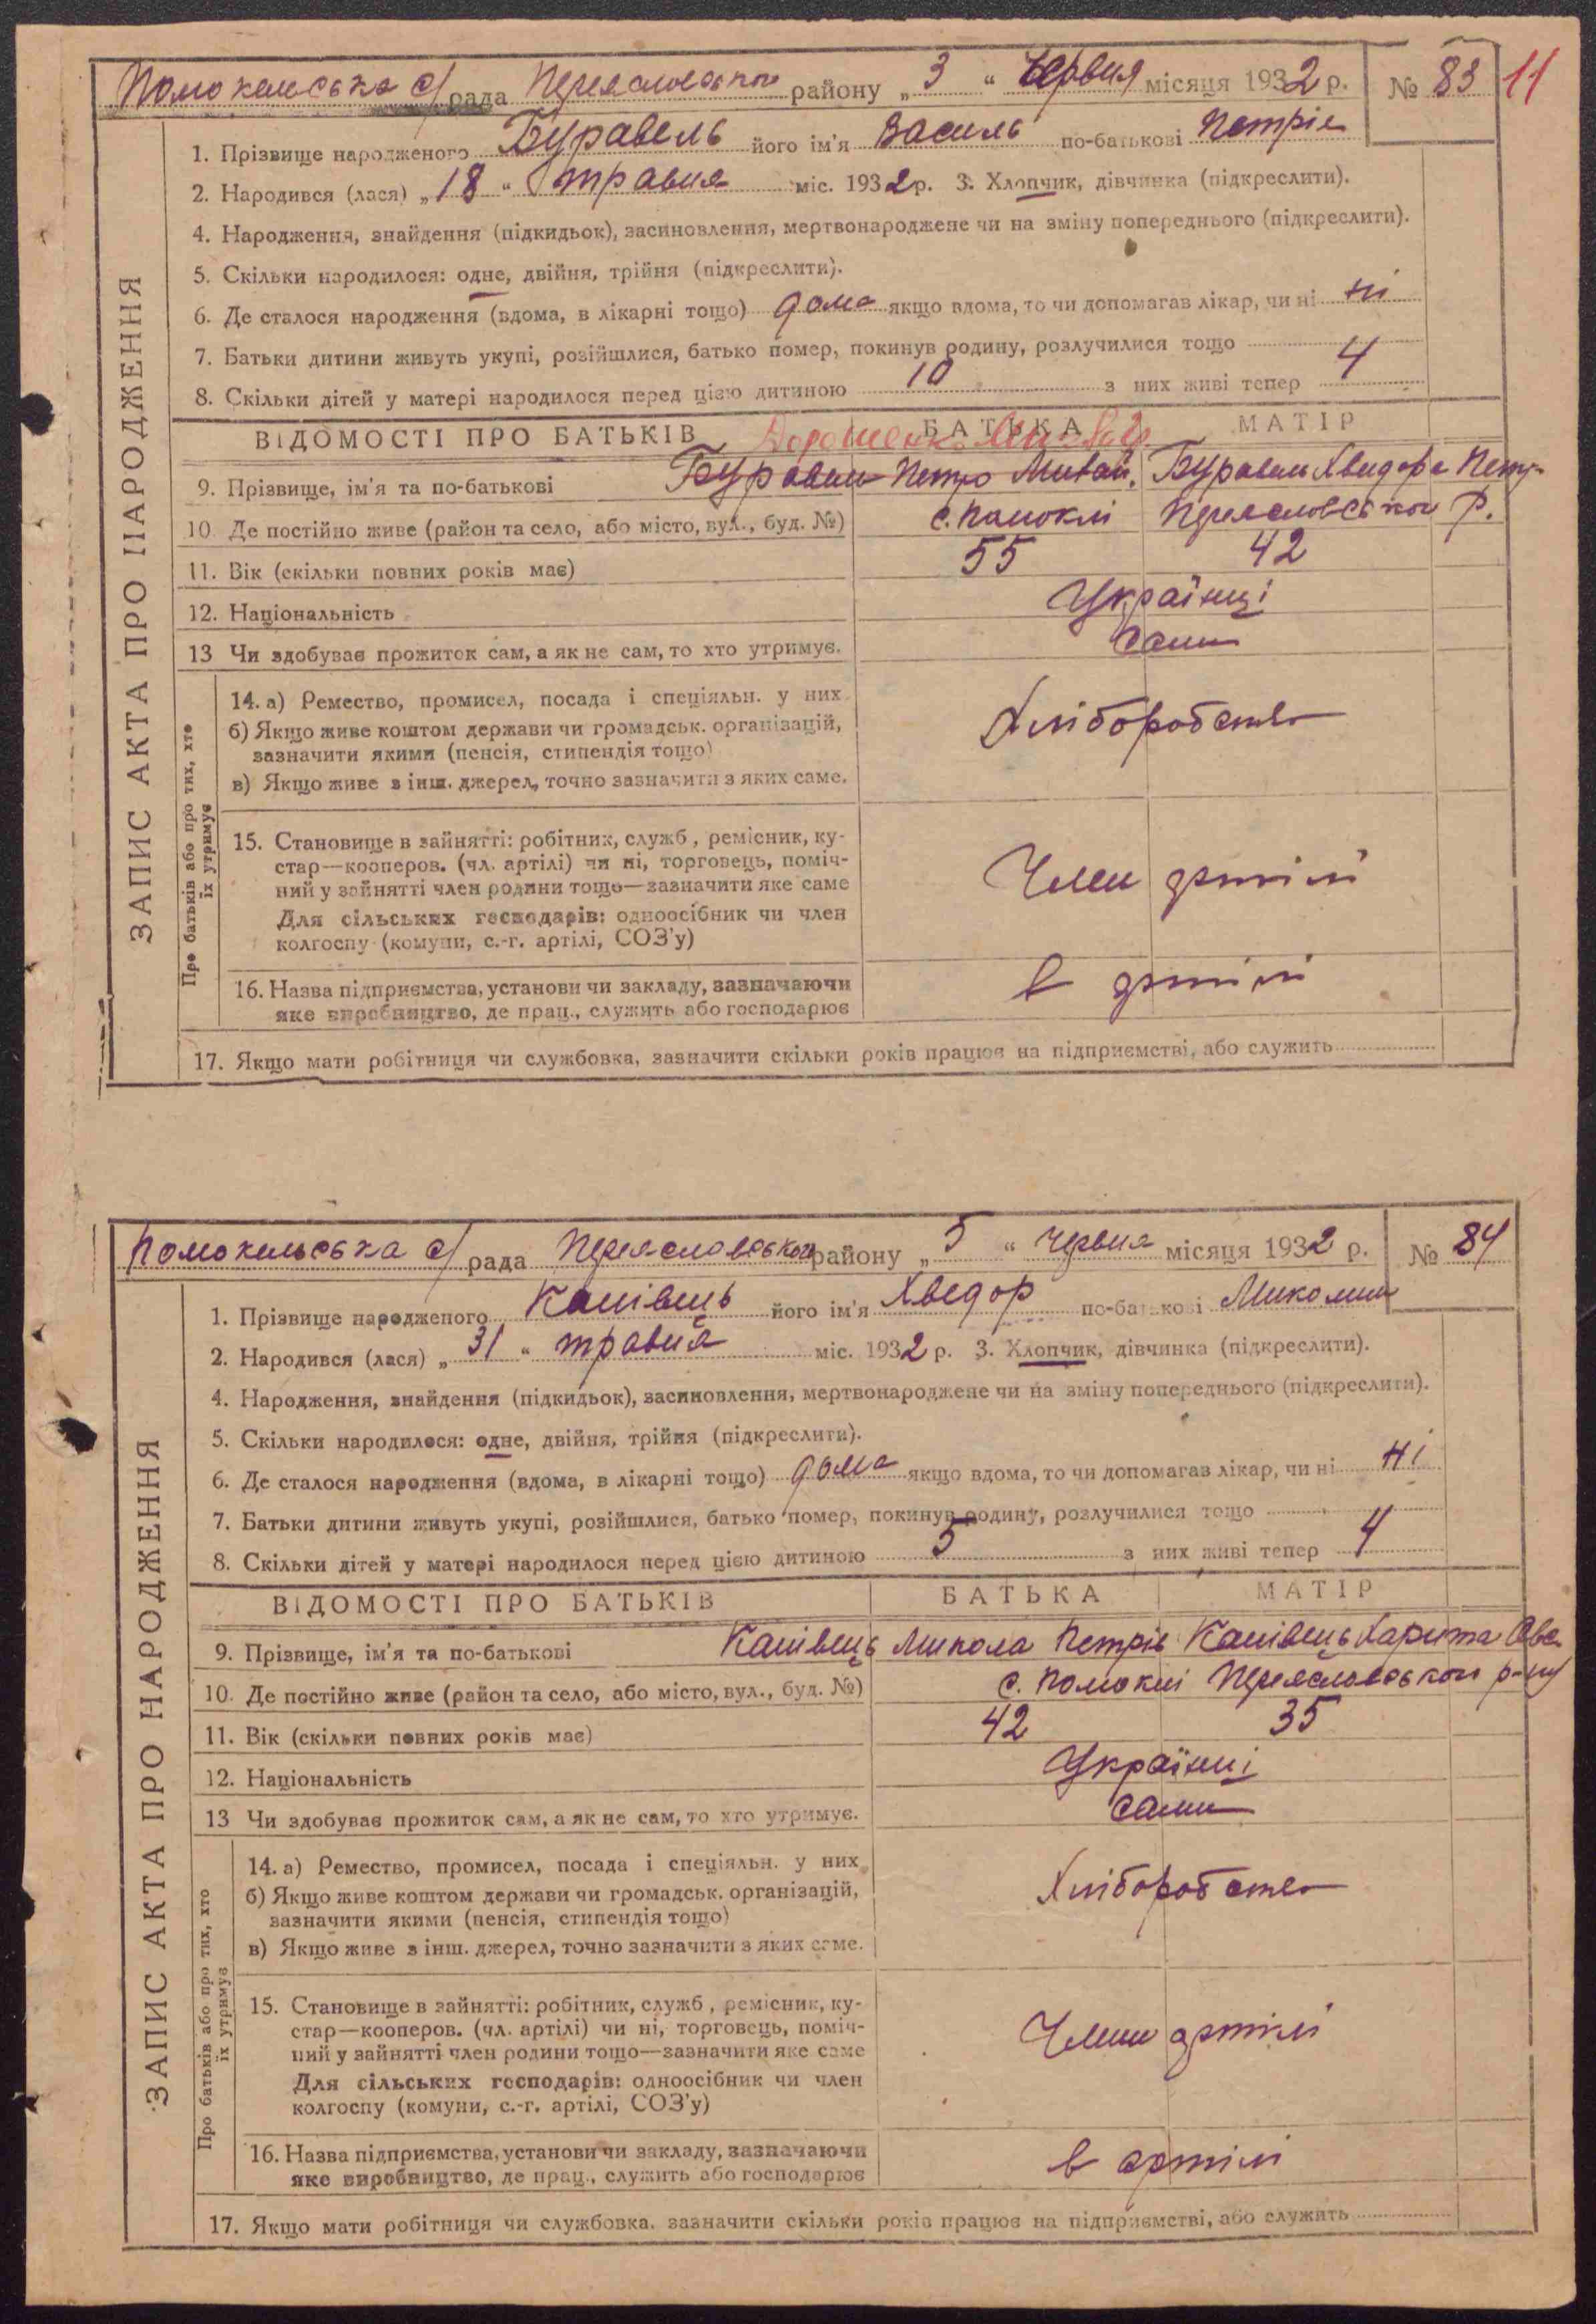 Помокельська с/рада Переяславського району „ 3 “ Червня місяця 1932 р. № 83 11
1. Прізвище народженого Буравель його ім'я Василь по-батькові Петрів
2. Народився (лася) „ 18 “ травня міс. 1932 р. 3. Хлопчик, дівчинка (підкреслити).
4. Народження, знайдення (підкидьок), засиновлення, мертвонароджене чи на зміну попереднього (підкреслити).
5. Скільки народилося: одне, двійня, трійня (підкреслити).
6. Де сталося народження (вдома, в лікарні тощо) дома якщо вдома, то чи допомагав лікар, чи ні ні
7. Батьки дитини живуть укупі, розійшлися, батько помер, покинув родину, розлучилися тощо
8. Скільки дітей у матері народилося перед цією дитиною 10 з них живі тепер 4
ЗАПИС АКТА ПРО НАРОДЖЕННЯ
ВІДОМОСТІ ПРО БАТЬКІВ БАТЬКА МАТІР
9. Прізвище, ім'я та по-батькові Буравель Петро Михай. Буравель Хведора Петр.
10. Де постійно живе (район та село, або місто, вул., буд. №) с. Помоклі Переяславського Р.
11. Вік (скільки повних років має) 55 42
12. Національність Українці
13 Чи здобуває прожиток сам, а як не сам, то хто утримує. Сами
Про батьків або про тих, хто їх утримує
14. а) Ремество, промисел, посада і спеціяльн. у них
б) Якщо живе коштом держави чи громадськ. організацій,
зазначити якими (пенсія, стипендія тощо)
в) Якщо живе з інш. джерел, точно зазначити з яких саме.
Хліборобство
15. Становище в зайнятті: робітник, служб., ремісник, ку-
стар—кооперов. (чл. артілі) чи ні, торговець, поміч-
ний у зайнятті член родини тощо—зазначити яке саме
Для сільських господарів: одноосібник чи член
колгоспу (комуни, с.-г. артілі, СОЗ'у)
Член артілі
16. Назва підприємства, установи чи закладу, зазначаючи
яке виробництво, де прац., служить або господарює
в артілі
17. Якщо мати робітниця чи службовка, зазначити скільки років працює на підприємстві, або служить
Помокельська с/рада Переяславського району „ 5 “ червня місяця 1932 р. № 84
1. Прізвище народженого Канівець його ім'я Хведор по-батькові Миколин
2. Народився (лася) „ 31 “ травня міс. 1932 р. 3. Хлопчик, дівчинка (підкреслити).
4. Народження, знайдення (підкидьок), засиновлення, мертвонароджене чи на зміну попереднього (підкреслити).
5. Скільки народилося: одне, двійня, трійня (підкреслити).
6. Де сталося народження (вдома, в лікарні тощо) дома якщо вдома, то чи допомагав лікар, чи ні ні
7. Батьки дитини живуть укупі, розійшлися, батько помер, покинув родину, розлучилися тощо
8. Скільки дітей у матері народилося перед цією дитиною 5 з них живі тепер 4
ЗАПИС АКТА ПРО НАРОДЖЕННЯ
ВІДОМОСТІ ПРО БАТЬКІВ БАТЬКА МАТІР
9. Прізвище, ім'я та по-батькові Канівець Микола Петрів Канівець Харита Овс.
10. Де постійно живе (район та село, або місто, вул., буд. №) с. Помоклі Переяславського р-ну
11. Вік (скільки повних років має) 42 35
12. Національність Українці
13 Чи здобуває прожиток сам, а як не сам, то хто утримує. Сами
Про батьків або про тих, хто їх утримує
14. а) Ремество, промисел, посада і спеціяльн. у них
б) Якщо живе коштом держави чи громадськ. організацій,
зазначити якими (пенсія, стипендія тощо)
в) Якщо живе з інш. джерел, точно зазначити з яких саме.
Хліборобство
15. Становище в зайнятті: робітник, служб., ремісник, ку-
стар—кооперов. (чл. артілі) чи ні, торговець, поміч-
ний у зайнятті член родини тощо—зазначити яке саме
Для сільських господарів: одноосібник чи член
колгоспу (комуни, с.-г. артілі, СОЗ'у)
Члени артілі
16. Назва підприємства, установи чи закладу, зазначаючи
яке виробництво, де прац., служить або господарює
в артілі
17. Якщо мати робітниця чи службовка, зазначити скільки років працює на підприємстві, або служить